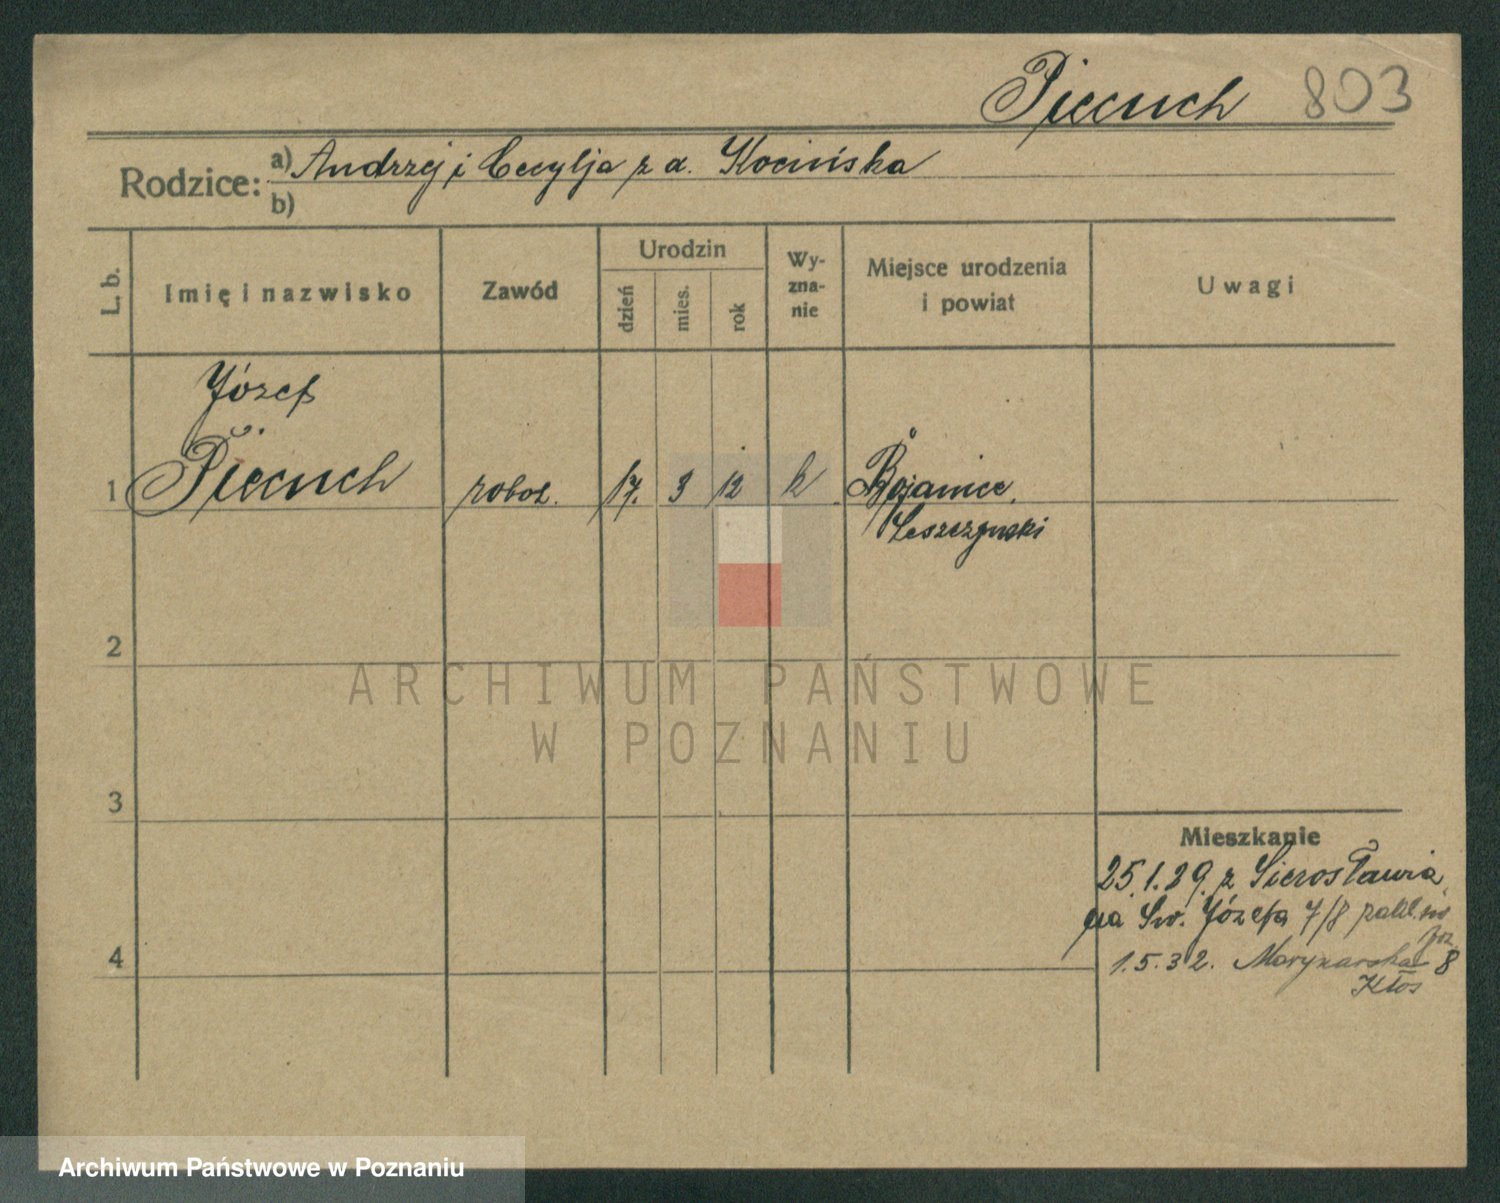 Piecuch 803
Rodzice: a) Andrzej i Cecylja z d. Kocińska
b)
L. b.
Imię i nazwisko
Zawód
Urodzin
dzień
mies.
rok
Wy-
zna-
nie
Miejsce urodzenia
i powiat
Uwagi
Józef
1 Piecuch robot. 17. 3 12 k Bojanice
Leszczynski
2
ARCHIWUM PAŃSTWOWE
W POZNANIU
3
Mieszkanie
25.1.29. z Sierosławia
na Św. Józefa 7/8
4
1.5.32. Marynarska 8
Kłos
Archiwum Państwowe w Poznaniu